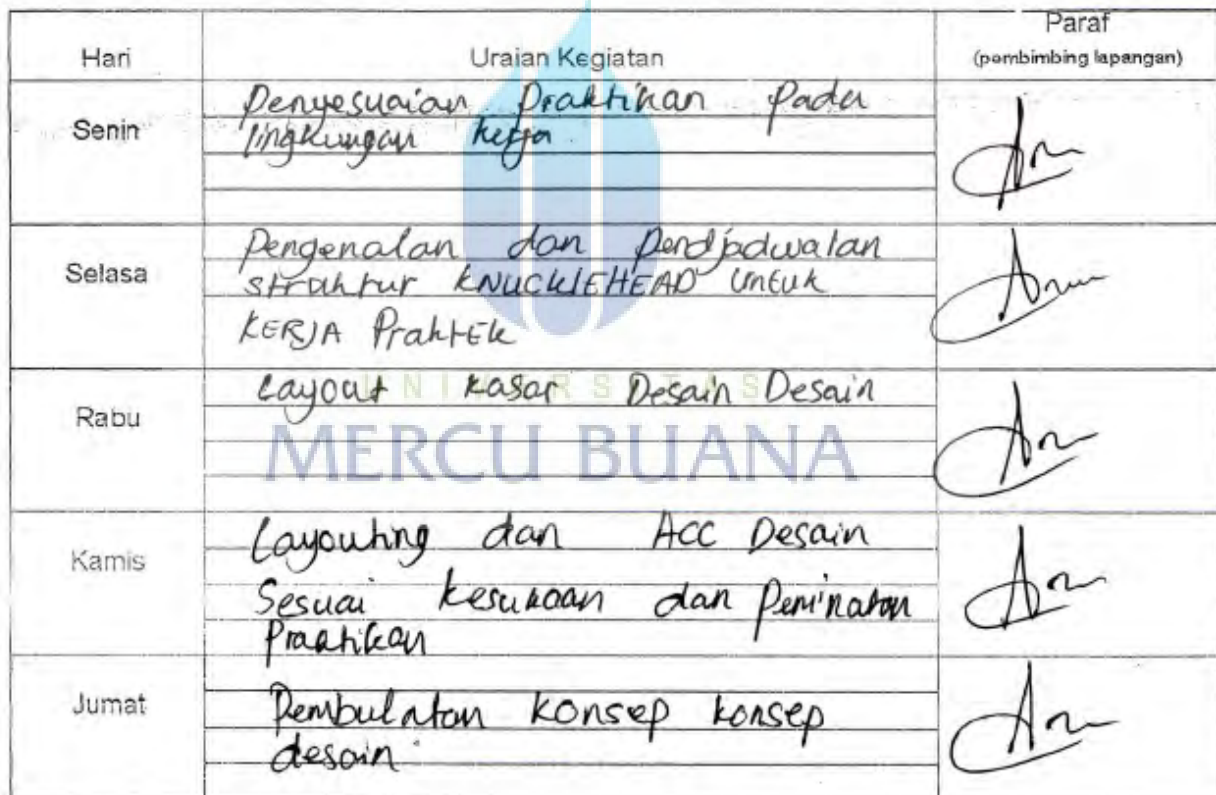 Paraf
Hari Uraian Kegiatan (pembimbing lapangan)
Senin
Penyesuaian Praktikan Pada
lingkungan kerja
Selasa
Pengenalan dan Pendjadwalan
struktur KNUCKLEHEAD untuk
KERJA PraktEk
Rabu
Layout kasar Desain Desain
UNIVERSITAS
MERCU BUANA
Kamis
Layouting dan ACC Desain
Sesuai kesukaan dan Peminatan
Praktikan
Jumat
Pembulatan konsep konsep
desain